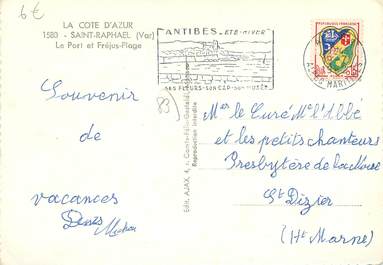 6€
LA COTE D'AZUR
1580 - SAINT-RAPHAEL (Var)
Le Port et Fréjus-Plage
ANTIBES ETE-HIVER
SES FLEURS-SON CAP-SON MUSÉE
83)
Edit. AJAX 4, r.
Reproduction interdite
Souvenir
de
vacances
Denis Michou
Mer le Curé Me l'Abbé
et les petits chanteurs
Presbytère de la Noue
St Dizier
(Hte Marne)